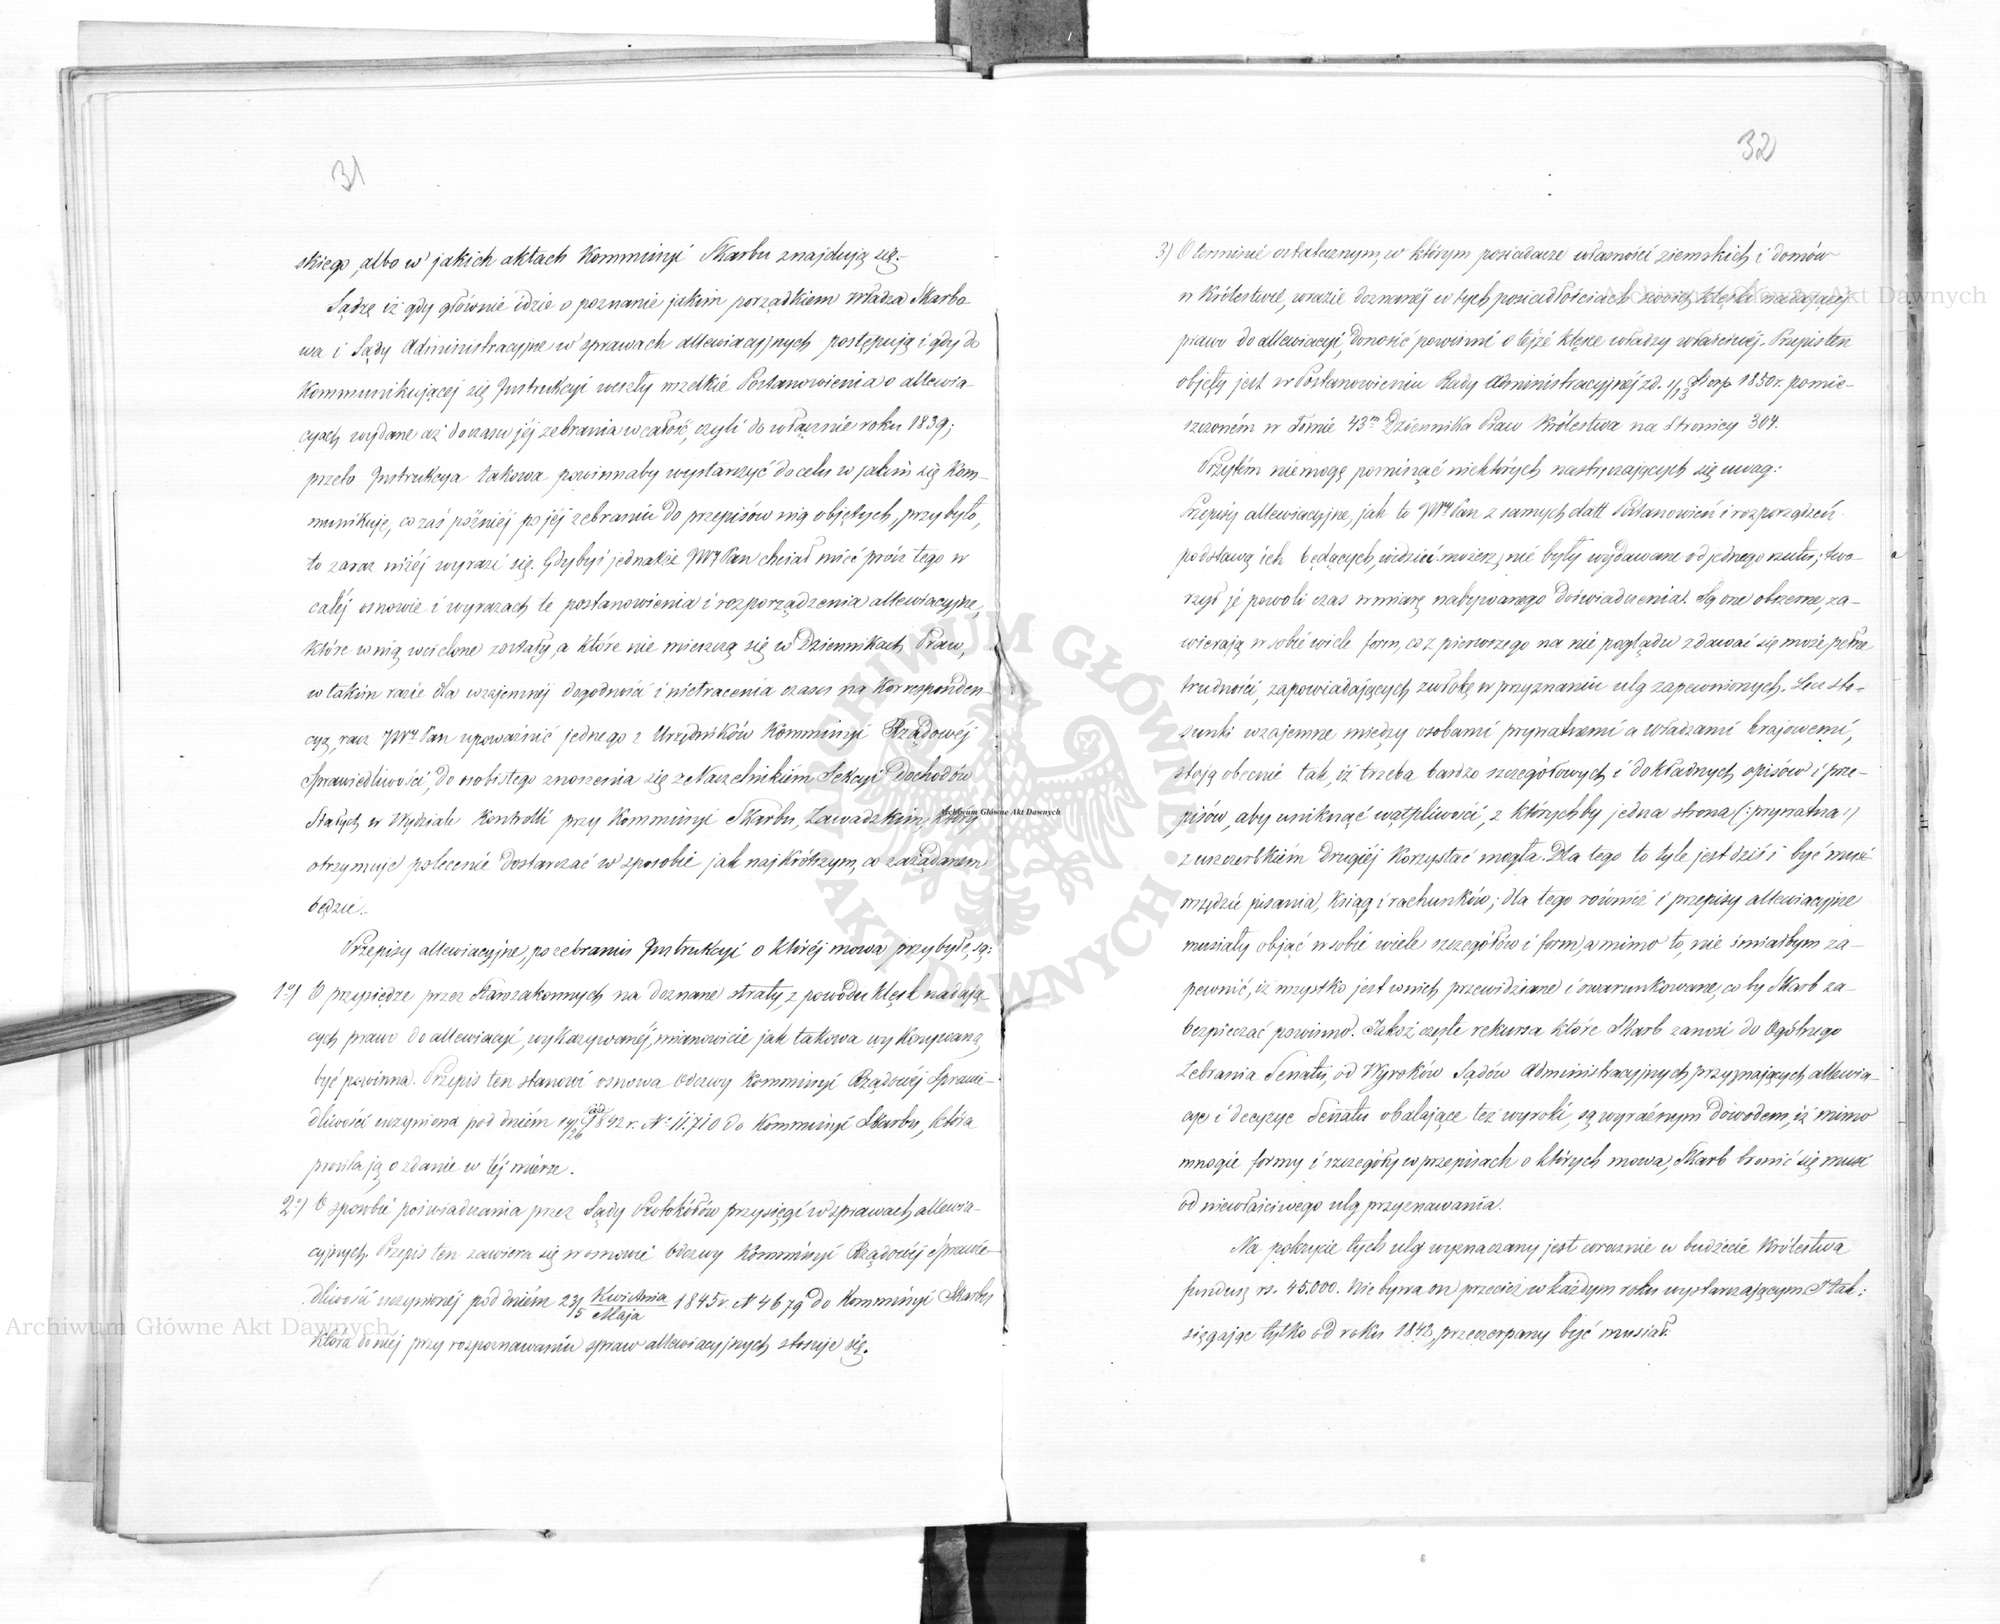 31
skiego, albo w jakich aktach Kommissyi Skarbu znajdują się.
Sądzę iż gdy głównie idzie o poznanie jakim porządkiem Władza Skarbo-
wa i Sądy Administracyjne w sprawach allewiacyjnych postępują i gdy do
Kommunikującej się Instrukcyi weszły wszelkie Postanowienia o allewia-
cyach wydane aż do czasu jéj zebrania w całość, czyli do włącznie roku 1839;
przeto Instrukcya takowa, powinnaby wystarczyć do celu w jakim się Kom-
munikuje, co zaś późniéj po jéj zebraniu do przepisów nią objętych, przybyło,
to zaraz niżéj wyrazi się. Gdybyś jednakże JWy Pan chciał mieć prócz tego w
całéj osnowie i wyrazach te postanowienia i rozporządzenia allewiacyjne,
które w nią wcielone zostały, a które nie mieszczą się w Dziennikach Praw,
w takim razie dla wzajemnéj dogodności i nietracenia czasu na Korresponden-
cyą, racz JWy Pan upoważnić jednego z Urzędników Kommissyi Rządowéj
Sprawiedliwości, do osobistego znoszenia się z Naczelnikiem Sekcyi Dochodów
Stałych w Wydziale Kontrolli przy Kommissyi Skarbu, Zawadzkim, który
otrzymuje polecenie dostarczać w sposobie jak najkrótszym, co zażądanem
będzie.
Przepisy allewiacyjne, po zebraniu Instrukcyi o któréj mowa przybyłe, są:
1o) O przysiędze przez Starozakonnych na doznane straty, z powodu klęsk nadają-
cych prawo do allewiacyi, wykazywanéj, mianowicie jak takowa wykonywaną
być powinna. Przepis ten stanowi osnowa odezwy Kommissyi Rządowéj Sprawie-
dliwości uczyniona pod dniem 14/26 1842 r. No 11.710 do Kommissyi Skarbu, która
prosiła ją o zdanie w téj mierze.
2o) O sposobie poświadczania przez Sądy Protokółów przysięgi w sprawach allewia-
cyjnych. Przepis ten zawiera się w osnowie odezwy Kommissyi Rządowéj Sprawie-
dliwości uczynionéj pod dniem 23/5 Kwietnia/Maja 1845 r. N 4679 do Kommissyi Skarbu
która do niéj przy rozpoznawaniu spraw allewiacyjnych stosuje się.
32
3) O terminie ostatecznym, w którym posiadacze własności ziemskich i domów
w Królestwie, w razie doznanéj w tych posiadłościach swoich klęski nadającéj
prawo do allewiacyi, donosić powinni o téjże klęsce władzy właściwéj. Przepis ten
objęty jest w Postanowieniu Rady Administracyjnéj z d. 1/13 Sierp 1850 r. pomie-
szczoném w Tomie 43m Dziennika Praw Królestwa na Stronicy 304.
Przytém niemogę pominąć niektórych nastręczających się uwag:
Przepisy allewiacyjne, jak to JWy Pan z samych datt Postanowień i rozporządzeń
podstawą ich będących, widzieć możesz, nie były wydawane od jednego rzutu; two-
rzył je powoli czas w miarę nabywanego doświadczenia. Są one obszerne, za-
wierają w sobie wiele form, co z pierwszego na nie poglądu zdawać się może pełne
trudności, zapowiadających zwłokę w przyznaniu ulg zapewnionych. Lecz sto-
sunki wzajemne między osobami prywatnemi a władzami krajowemi,
stoją obecnie tak, iż trzeba bardzo szczegółowych i dokładnych opisów i prze-
pisów, aby uniknąć wątpliwości, z którychby jedna strona (:prywatna:)
z uszczerbkiem drugiéj korzystać mogła. Dla tego to tyle jest dziś i być musi
wszędzie pisania, ksiąg i rachunków; dla tego również i przepisy allewiacyjne
musiały objąć w sobie wiele szczegółów i form, a mimo to, nie śmiałbym za-
pewnić, iż wszystko jest w nich przewidziane i owarunkowane, co by Skarb za-
bezpieczać powinno. Jakoż częste rekursa które Skarb zanosi do Ogólnego
Zebrania Senatu, od Wyroków Sądów Administracyjnych przyznających allewia-
cye i decyzye Senatu obalające też wyroki, są wyraźnym dowodem, iż mimo
mnogie formy i szczegóły w przepisach o których mowa, Skarb bronić się musi
od niewłaściwego ulg przyznawania.
Na pokrycie tych ulg wyznaczany jest corocznie w budżecie Królestwa
fundusz rs. 45.000. Nie bywa on przecież w każdym roku wystarczającym. I tak:
sięgając tylko od roku 1842, przeczerpany być musiał:
Archiwum Główne Akt Dawnych
Archiwum Główne Akt Dawnych
Archiwum Główne Akt Dawnych
ARCHIWUM GŁÓWNE
AKT DAWNYCH